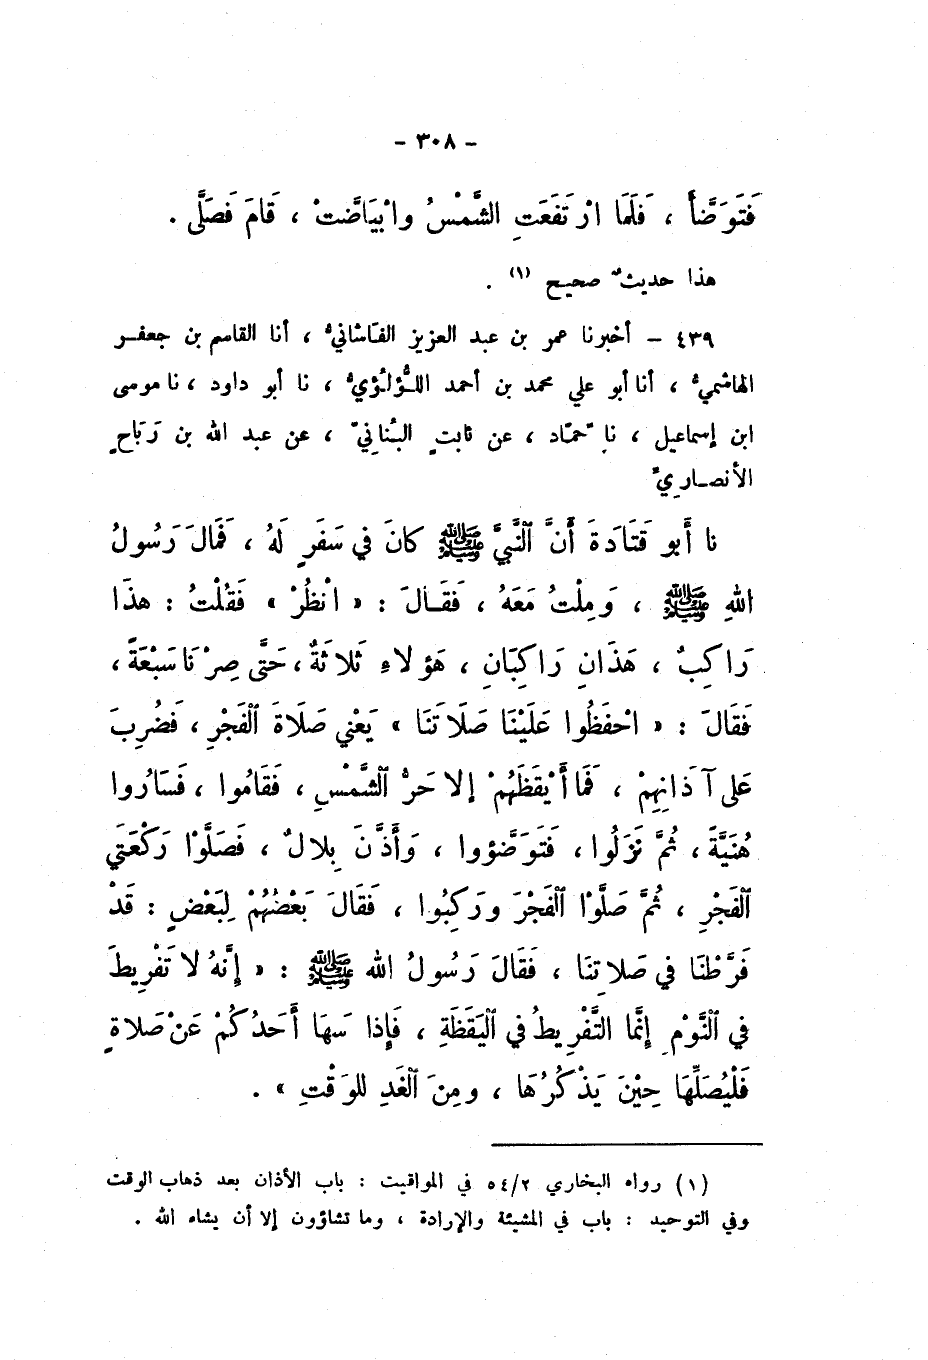 - ٣٠٨ -
فَتَوَضَّأَ ، فَلَمَّا ارْتَفَعَتِ الشَّمْسُ وابْيَاضَّتْ ، قَامَ فَصَلَّى .
هذا حديثٌ صحيح (١) .
٤٣٩ - أخبرنا عمر بن عبد العزيز الفَاشانيُّ ، أنا القاسم بن جعفـر
الهاشميُّ ، أنا أبو علي محمد بن أحمد اللُّؤلُؤيُّ ، نا أبو داود ، نا موسى
ابن إسماعيل ، نا حمّاد ، عن ثابتٍ البُنانِيّ ، عن عبد الله بن رَبَاحٍ
الأنصـارِيِّ
نا أَبو قَتَادَةَ أَنَّ ٱلنَّبِيَّ ﷺ كانَ في سَفَرٍ لَهُ ، فَمَالَ رَسُولُ
اللهِ ﷺ ، وَمِلْتُ مَعَهُ ، فَقَـالَ : « انْظُرْ » فَقُلْتُ : هذَا
رَاكِبٌ ، هَذَانِ رَاكِبَانِ ، هَؤلاءِ ثَلاثَةٌ ، حَتَّى صِرْنَا سَبْعَةً ،
فَقَالَ : « احْفَظُوا عَلَيْنَا صَلَاتَنَا » يَعْني صَلَاةَ ٱلفَجْرِ ، فَضُرِبَ
عَلى آذَانِهِمْ ، فَمَا أَيْقَظَهُمْ إلا حَرُّ ٱلشَّمْسِ ، فَقَامُوا ، فَسَارُوا
هُنَيَّةً ، ثُمَّ نَزَلُوا ، فَتَوَضَّؤوا ، وَأَذَّنَ بِلالٌ ، فَصَلَّوْا رَكْعَتَي
ٱلفَجْرِ ، ثُمَّ صَلَّوْا ٱلفَجْرَ ورَكِبُوا ، فَقَالَ بَعْضُهُمْ لِبَعْضٍ : قَدْ
فَرَّطْنَا في صَلاتِنَا ، فَقَالَ رَسُولُ الله ﷺ : « إِنَّهُ لا تَفْرِيطَ
في ٱلنَّوْمِ إِنَّما التَّفْرِيطُ في ٱليَقَظَةِ ، فَإِذا سَهَا أَحَدُكُمْ عَنْ صَلاةٍ
فَلْيُصَلِّهَا حِيْنَ يَذْكُرُهَا ، ومِنَ ٱلغَدِ للوَقْتِ » .
(١) رواه البخاري ٥٤/٢ في المواقيت : باب الأذان بعد ذهاب الوقت
وفي التوحيد : باب في المشيئة والإرادة ، وما تشاؤون إلا أن يشاء الله .